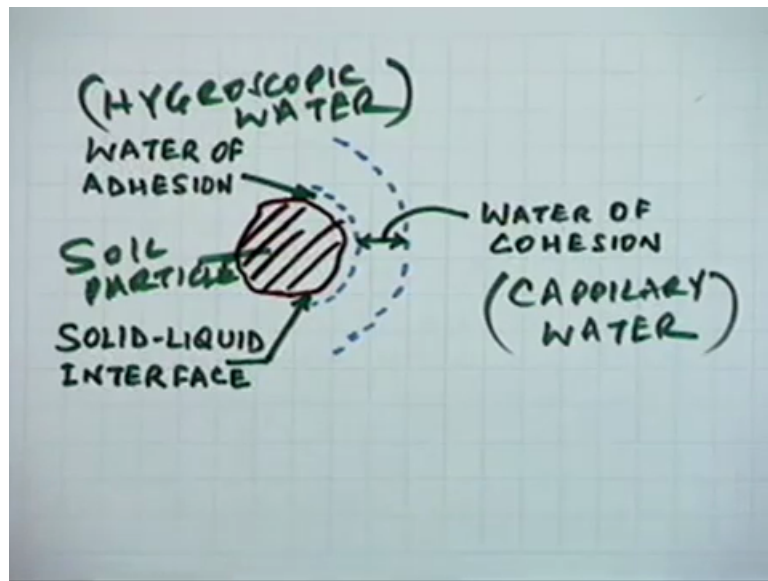 (HYGROSCOPIC
WATER)
WATER OF
ADHESION
SOIL
PARTICLE
SOLID-LIQUID
INTERFACE
WATER OF
COHESION
(CAPPILARY
WATER)